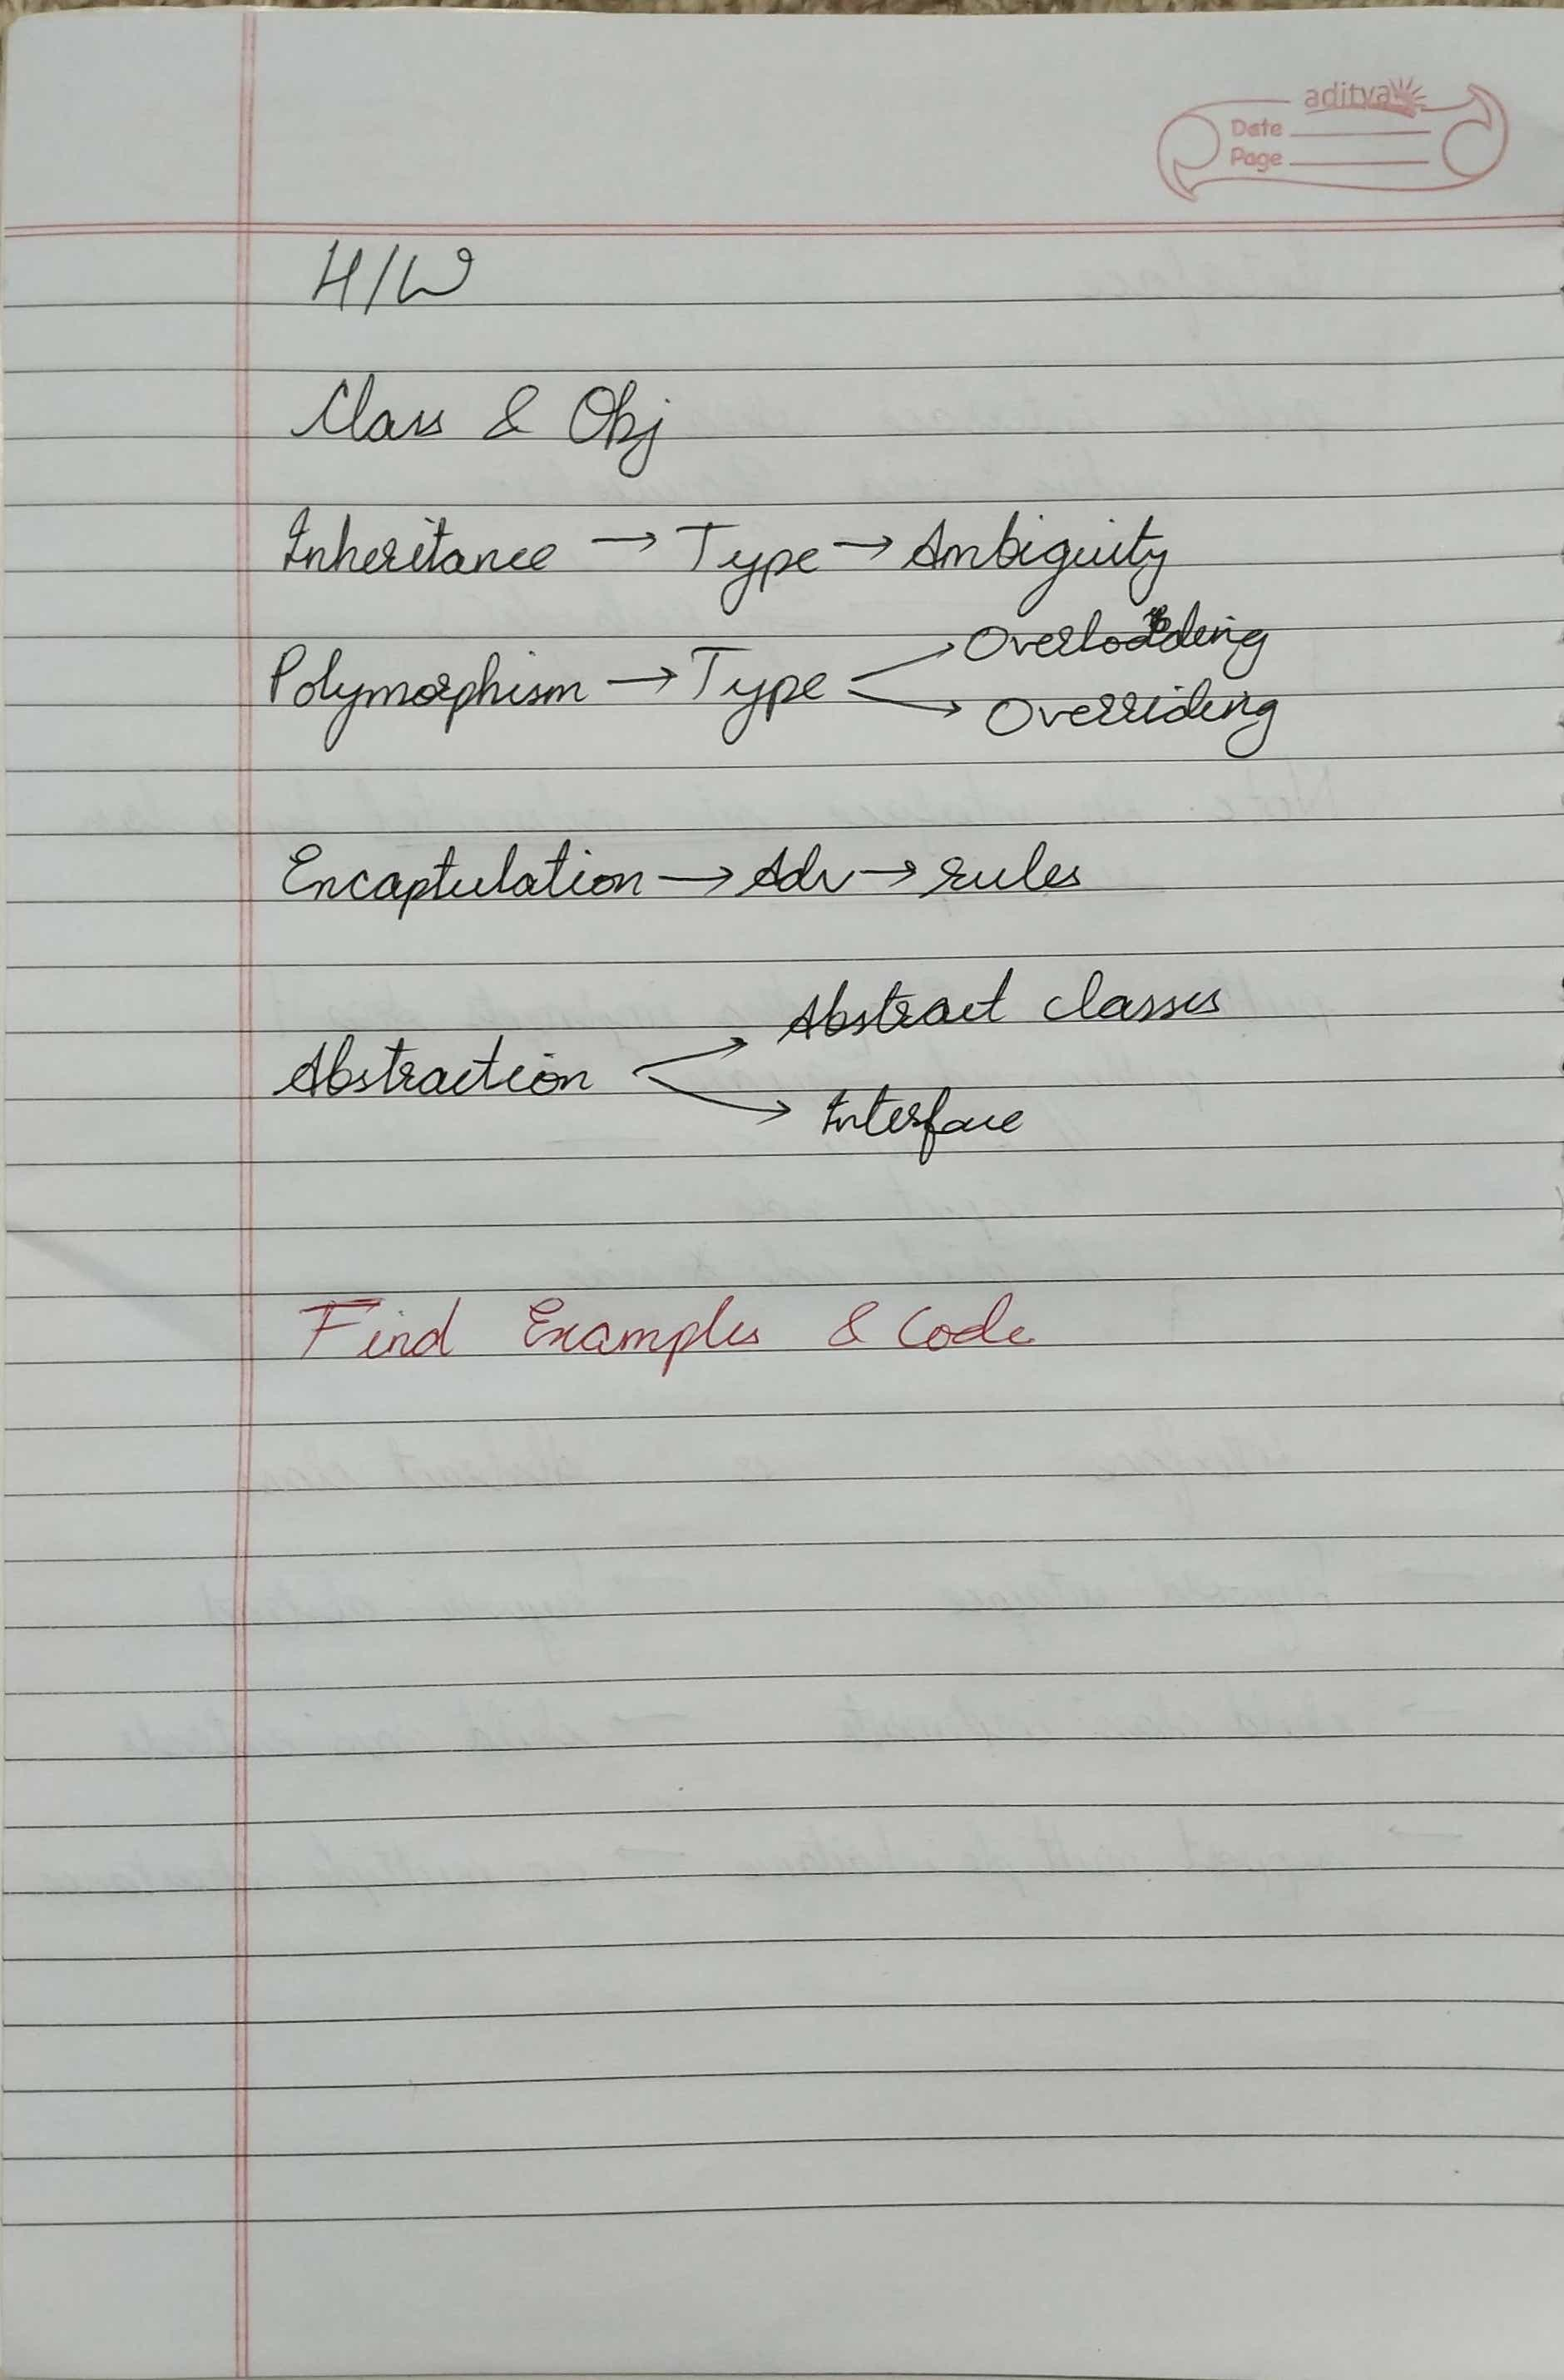 aditya
Date
Page
H/W
Class & Obj
Inheritance → Type → Ambiguity
Polymorphism → Type → Overloading
→ Overriding
Encaptulation → Adv → rules
Abstraction → Abstract classes
→ Interface
Find Examples & Code